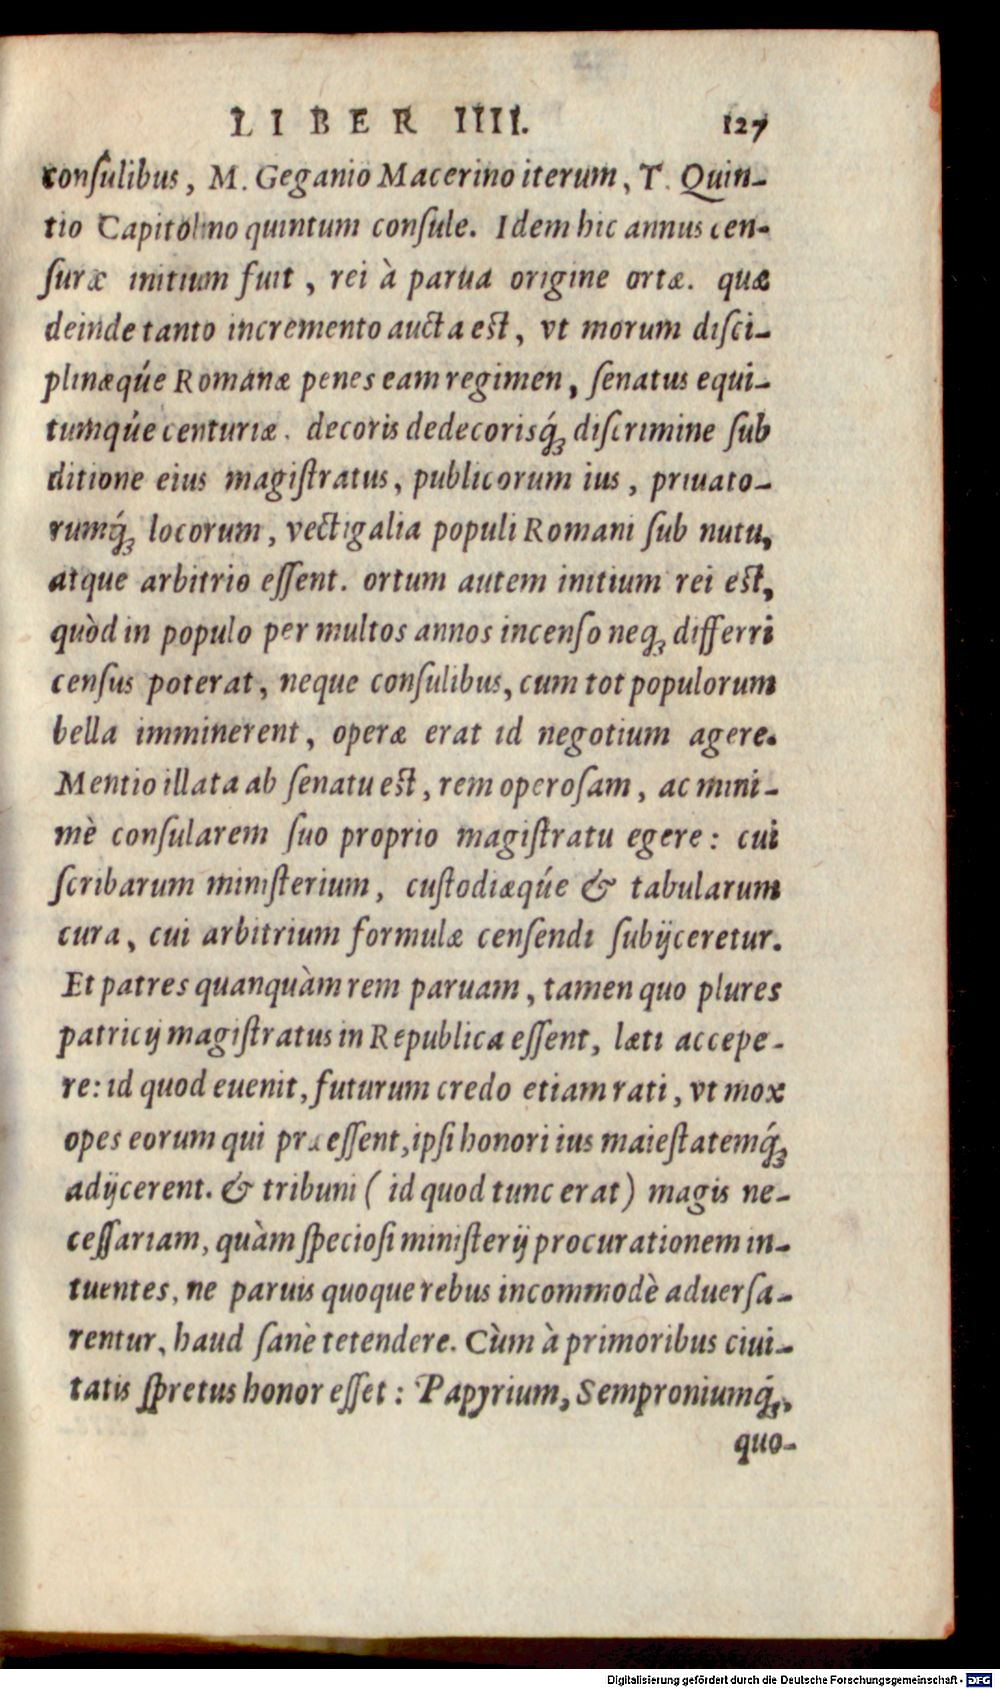 LIBER IIII. 127
conſulibus, M. Geganio Macerino iterum, T. Quin-
tio Capitolino quintum conſule. Idem hic annus cen-
ſuræ initium fuit, rei à parua origine ortæ. quæ
deinde tanto incremento aucta est, vt morum diſci-
plinæq́ue Romanæ penes eam regimen, ſenatus equi-
tumq́ue centuriæ. decoris dedecorisq́ꝫ diſcrimine ſub
ditione eius magiſtratus, publicorum ius, priuato-
rumq́ꝫ locorum, vectigalia populi Romani ſub nutu,
atque arbitrio eſſent. ortum autem initium rei est,
quòd in populo per multos annos incenſo neqꝫ differri
cenſus poterat, neque conſulibus, cum tot populorum
bella imminerent, operæ erat id negotium agere.
Mentio illata ab ſenatu est, rem operoſam, ac mini-
mè conſularem ſuo proprio magiſtratu egere: cui
ſcribarum miniſterium, cuſtodiæq́ue & tabularum
cura, cui arbitrium formulæ cenſendi ſubijceretur.
Et patres quanquàm rem paruam, tamen quo plures
patricij magiſtratus in Republica eſſent, læti accepe-
re: id quod euenit, futurum credo etiam rati, vt mox
opes eorum qui præeſſent, ipſi honori ius maieſtatemq́ꝫ
adijcerent. & tribuni ( id quod tunc erat ) magis ne-
ceſſariam, quàm ſpecioſi miniſterij procurationem in-
tuentes, ne paruis quoque rebus incommodè aduerſa-
rentur, haud ſanè tetendere. Cùm à primoribus ciui-
tatis ſpretus honor eſſet: Papyrium, Semproniumq́ꝫ,
quo-
Digitalisierung gefördert durch die Deutsche Forschungsgemeinschaft - DFG